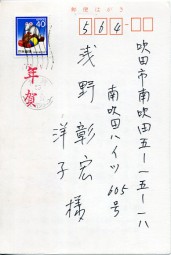 郵便はがき
40
564
年賀
吹田市南吹田五-一五-一八
南吹田ハイツ605号
浅野彰宏様
洋子